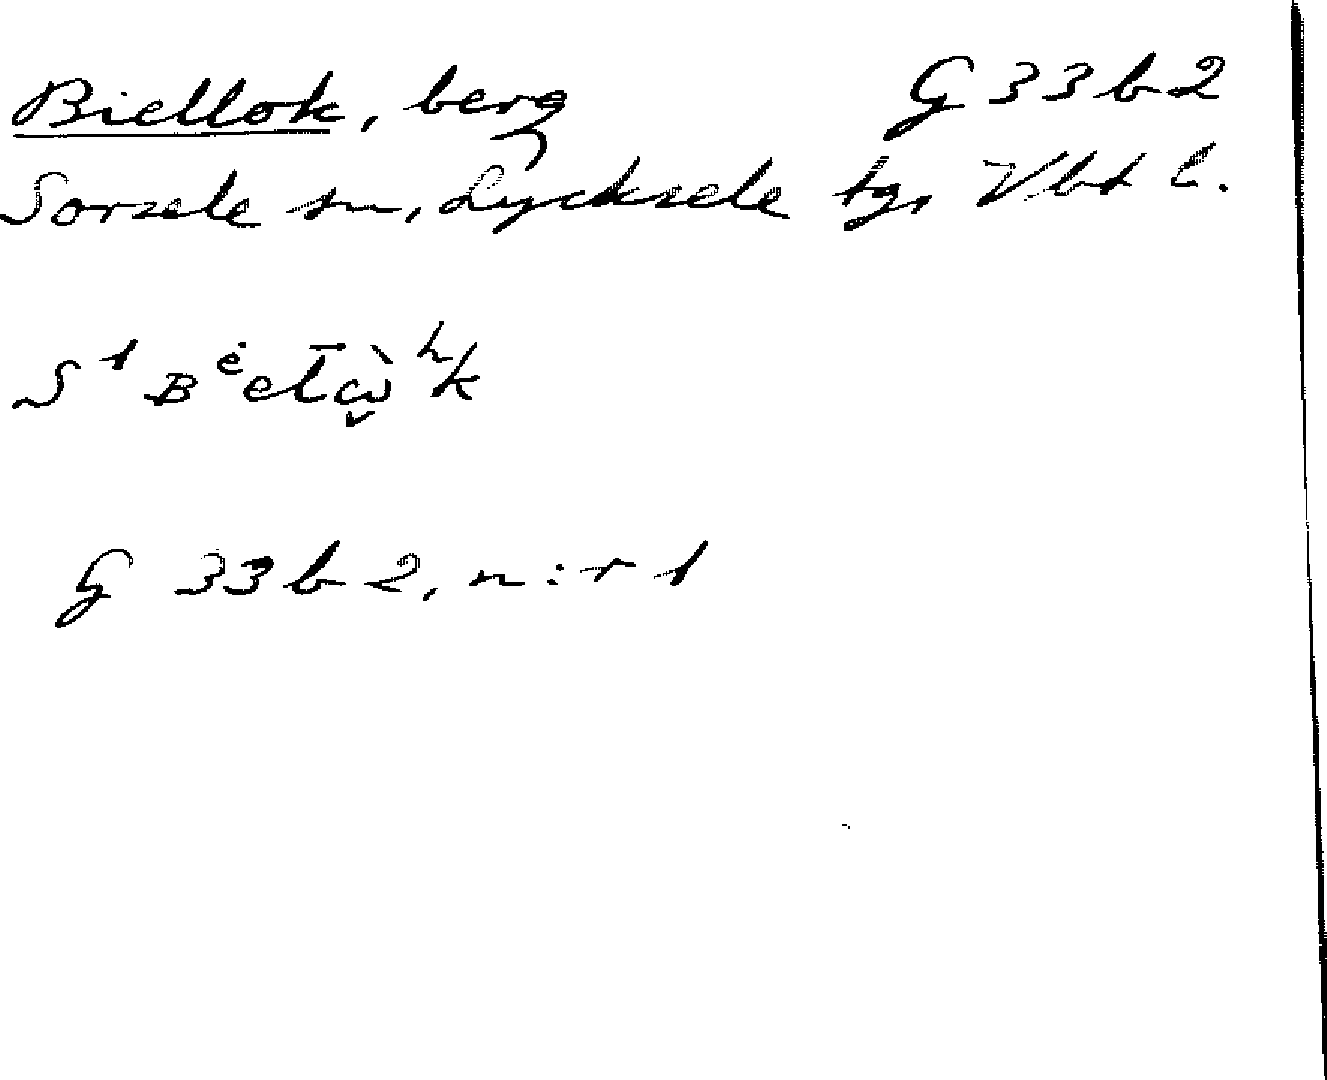 Biellok, berg G 33 b 2
Sorsele sn, Lycksele tg, Vbt l.
S 1
G 33 b 2, n:r 1